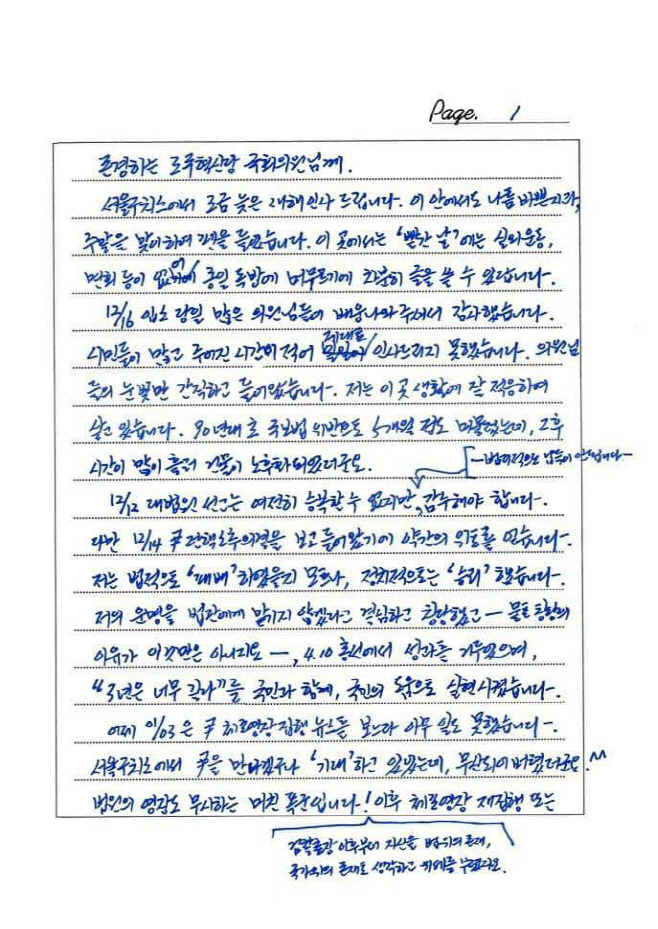 Page. 1
존경하는 조국혁신당 국회의원님께.
서울구치소에서 조금 늦은 새해인사 드립니다. 이 안에서도 나름 바쁜지라,
주말을 맞이하여 펜을 들었습니다. 이 곳에서는 '빨간 날'에는 실외운동,
면회 등이 없어 종일 독방에 머무르기에 차분히 글을 쓸 수 있답니다.
12/16 입소 당일 많은 의원님들이 배웅나와주셔서 감사했습니다.
시민들이 많고 주어진 시간이 적어 제대로 인사드리지 못했습니다. 의원님
들의 눈빛만 간직하고 들어왔습니다. 저는 이 곳 생활에 잘 적응하여
살고 있습니다. 90년대 초 국보법 위반으로 5개월 정도 머물렀는데, 그후
시간이 많이 흘러 건물이 노후화되었더군요.
12/12 대법원 선고는 여전히 승복할 수 없지만, 감수해야 합니다.
—법리적으로 납득이 안 됩니다—
다만 12/14 尹 탄핵소추의결을 보고 들어왔기에 약간의 위로를 얻습니다.
저는 법적으로 '패배'하였을지 모르나, 정치적으로는 '승리'했습니다.
저의 운명을 법관에게 맡기지 않겠다고 결심하고 창당했고 — 물론 창당의
이유가 이것만은 아니지요 —, 4.10 총선에서 성과를 거두었으며,
"3년은 너무 길다"를 국민과 함께, 국민의 힘으로 실현시켰습니다.
어제 01/03은 尹 체포영장집행 뉴스를 보느라 아무 일도 못했습니다.
서울구치소에서 尹을 만나겠구나 '기대'하고 있었는데, 무산되어 버렸더군요.
법원의 영장도 무시하는 미친 폭군입니다! 이후 체포영장 재집행 또는
검찰총장 이후부터 자신을 법위의 존재,
국가위의 존재로 생각하고 위세를 누렸지요.